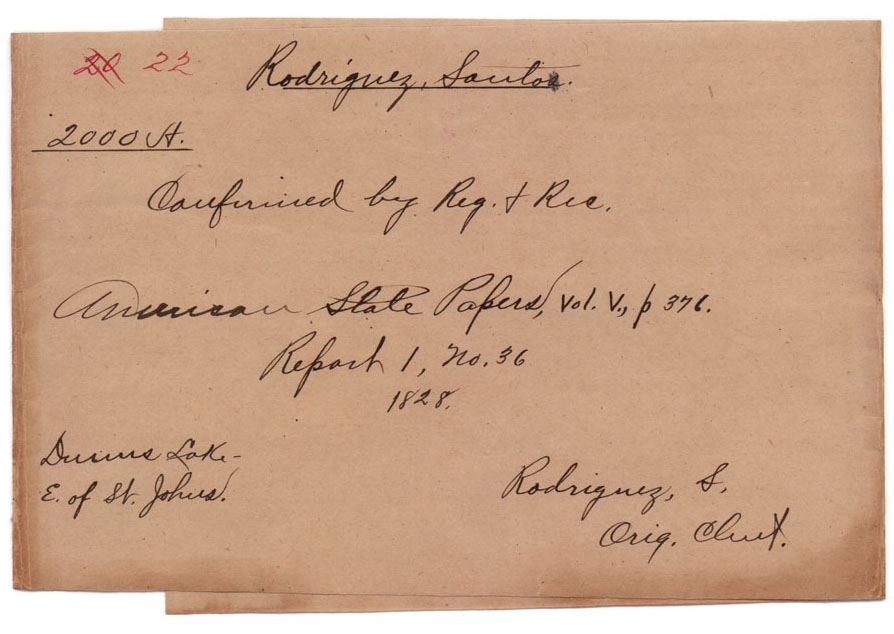 20 22
Rodriguez, Santos.
2000 A.
Confirmed by Reg. & Rec.
American State Papers, Vol. V., p 376.
Report 1, No. 36
1828.
Dunns Lake-
E. of St. Johns.
Rodriguez, S.
Orig. Clmt.